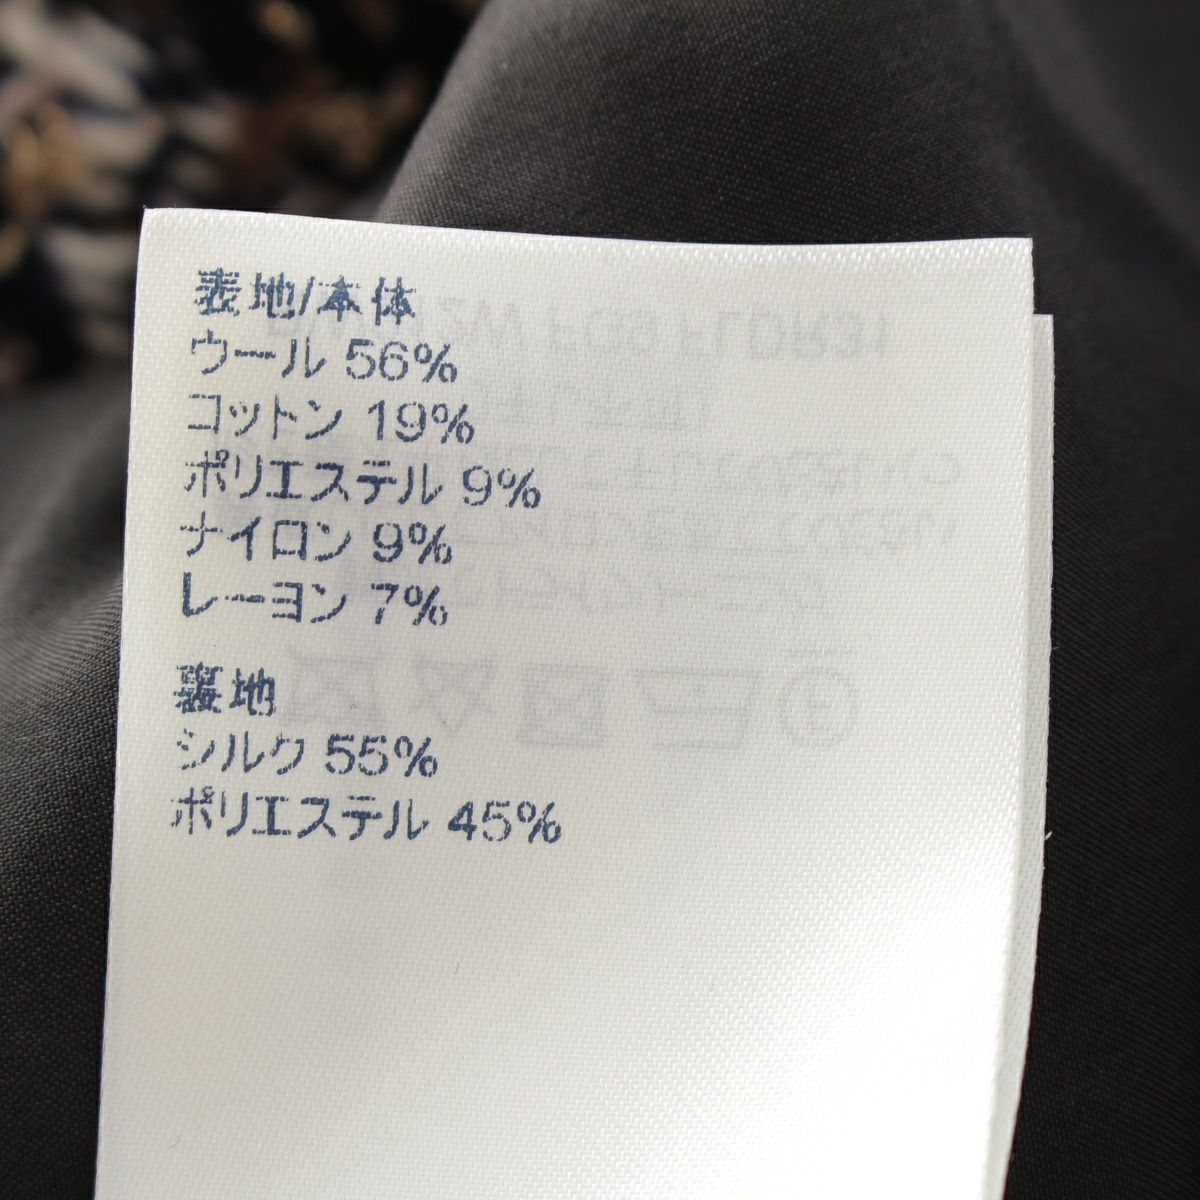 表地/本体
ウール 56%
コットン 19%
ポリエステル 9%
ナイロン 9%
レーヨン 7%
裏地
シルク 55%
ポリエステル 45%